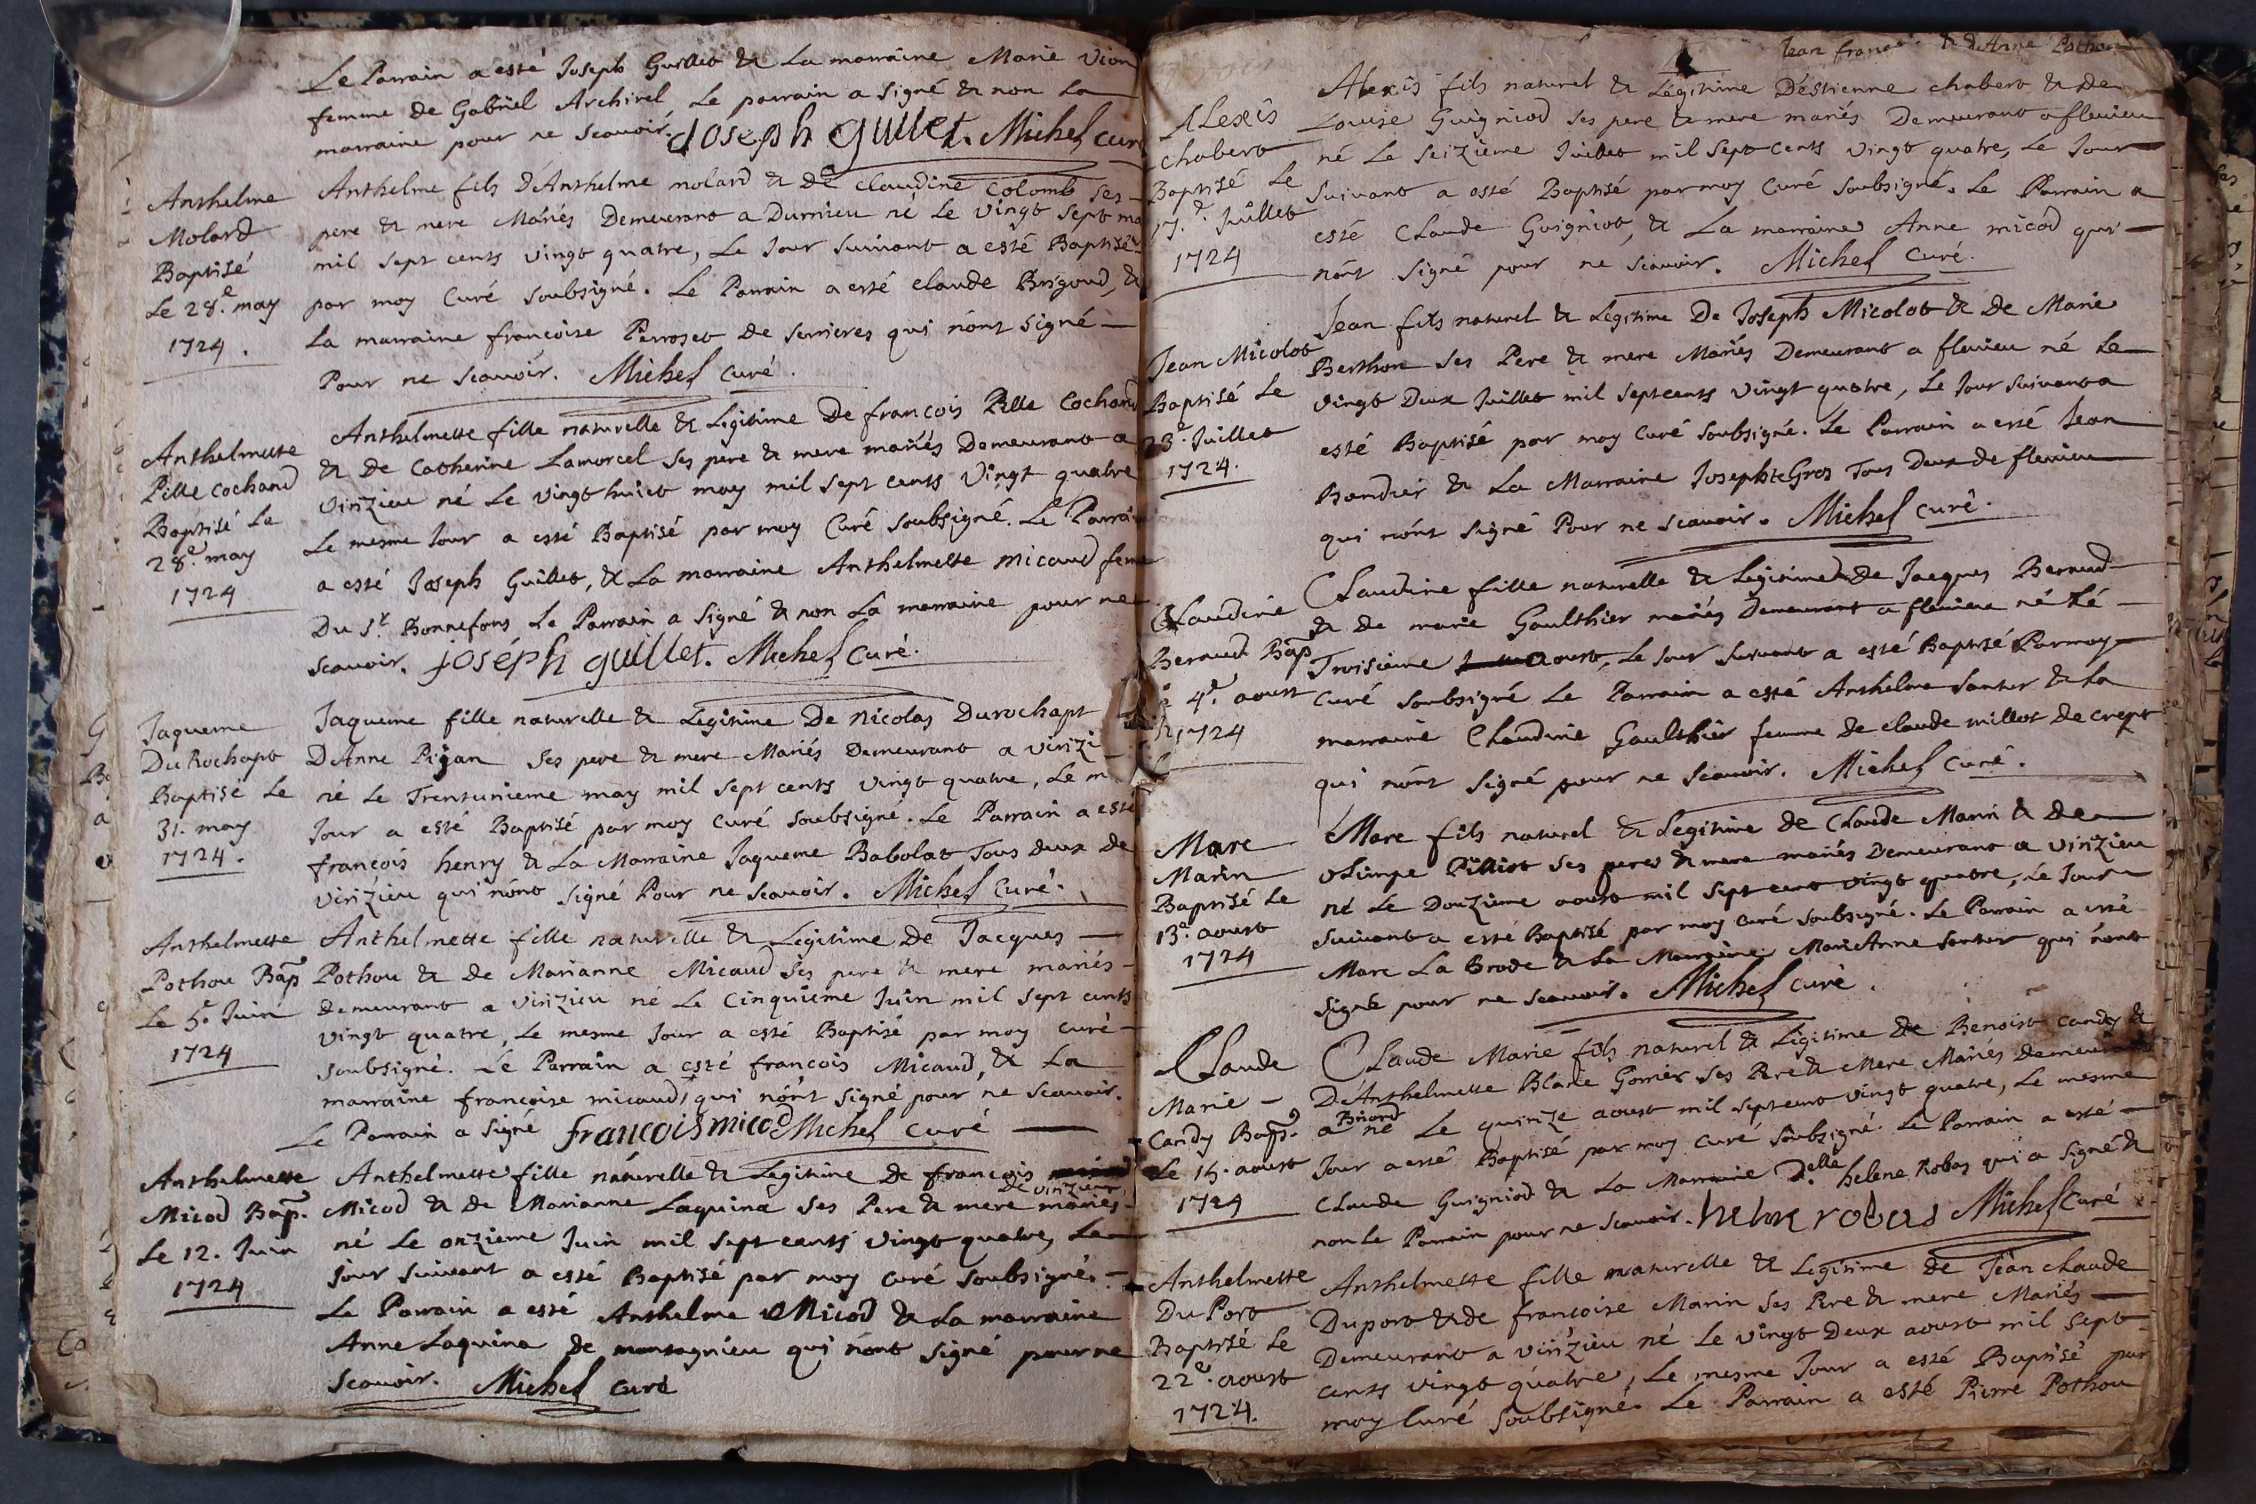 Le Parrain a esté Joseph Guillet & La marraine Marie Vion
femme de Gabriel Archirel, Le parrain a signé & non La
marraine pour ne scauoir. Joseph guillet. Michel curé
Anthelme
Molard
Baptisé
Le 28.e may
1724.
Anthelme fils d'Anthelme molard & de claudine colomb ses
pere & mere Mariés Demeurant a Dumieu né Le vingt sept may
mil sept cents vingt quatre, Le Jour suivant a esté Baptisé
par moy Curé soubsigné. Le Parrain a esté claude Brigoud, &
La marraine francoise Perroset de serrieres qui n'ont signé
Pour ne scauoir. Michel curé.
Anthelmette
Pille cochand
Baptisé Le
28.e may
1724
Anthelmette fille naturelle & Legitime De francois Pille Cochand
& de Catherine Lamorcel ses pere & mere mariés Demeurant a
virizieu né Le vingt huict may mil sept cents vingt quatre
Le mesme Jour a esté Baptisé par moy Curé soubsigné. Le Parrain
a esté Joseph Guillet, & La marraine Anthelmette micaud feme
Du Sr. Bonnefons Le Parrain a signé & non La marraine pour ne
scauoir. joseph guillet. Michel Curé.
Jaqueme
Du Rochapt
Baptisé Le
31. may
1724.
Jaqueme fille naturelle & Legitime De nicolas Durochapt
D'Anne Pijan ses pere & mere Mariés Demeurant a virizi
né Le Trentunieme may mil sept cents vingt quatre, Le m
Jour a esté Baptisé par moy curé soubsigné. Le Parrain a esté
francois henry & La Marraine Jaqueme Babolat Tous deux de
virizieu qui n'ont signé Pour ne scauoir. Michel Curé.
Anthelmette
Pothou Bap
Le 5.e Juin
1724
Anthelmette fille naturelle & Legitime De Jacques
Pothou & de Marianne Micaud ses pere & mere mariés
demeurant a virizieu né Le Cinquieme Juin mil sept cents
vingt quatre, Le mesme Jour a esté Baptisé par moy curé
soubsigné. Le Parrain a esté francois Micaud, & La
marraine francoise micaud, qui n'ont signé pour ne scauoir.
Le Parrain a signé francois micod Michel curé
Anthelmette
Micod Bap.
Le 12. Juin
1724
Anthelmette fille naturelle & Legitime de francois
de virizieu
Micod & de Marianne Laquina ses Pere & mere mariés
né Le onzieme Juin mil sept cents vingt quatre, Le
Jour suivant a esté Baptisé par moy curé soubsigné.
Le Parrain a esté Anthelme Micod & La marraine
Anne Laquina de montagnieu qui n'ont signé pour ne
scauoir. Michel curé
Jean franc & d'Anne Pothou
Alexis
chabert
Baptisé Le
17.e Juillet
1724
Alexis fils naturel & Légitime D'estienne chabert & de
Louise Guigniod ses pere & mere mariés Demeurant a fleuieu
né Le seizieme Juillet mil sept cents vingt quatre, Le Jour
suivant a esté Baptisé par moy Curé soubsigné. Le Parrain a
esté Claude Guigniot, & La marraine Anne micod qui
n'ont signé pour ne scauoir. Michel Curé.
Jean Micolot
Baptisé Le
23.e Juillet
1724.
Jean fils naturel & Legitime De Joseph Micolot & De Marie
Berthon ses Pere & mere Mariés Demeurant a fleuieu né Le
vingt Deux Juillet mil sept cents vingt quatre, Le Jour suivant a
esté Baptisé par moy curé soubsigné. Le Parrain a esté Jean
Bandier & La Marraine Josephte Gros Tous Deux de fleuieu
qui n'ont signé Pour ne scauoir. Michel curé.
Claudine
Beraud Bap
4.e aoust
1724
Claudine fille naturelle & Legitime de Jacques Beraud
& de marie Gaulthier mariés Demeurant a fleuieu né Le
Troisieme aoust, Le Jour suivant a esté Baptisé Par moy
Curé soubsigné Le Parrain a esté Anthelme santer & La
marraine Claudine Gaulthier femme de claude millot de crept
qui n'ont signé pour ne scauoir. Michel Curé.
Marc
Marin
Baptisé Le
13.e aoust
1724
Marc fils naturel & Legitime de Claude Marin & de
olimpe Pilliot ses peres & mere mariés Demeurant a virizieu
né Le Douzieme aoust mil sept cent vingt quatre, Le Jour
suivant a esté Baptisé par moy curé soubsigné. Le Parrain a esté
Marc La Brode & La Marraine Marie Anne santer qui n'ont
signé pour ne scauoir. Michel curé.
Claude
Marie
Candy Bap.
Le 15. aoust
1724
Claude Marie fils naturel & Legitime de Benoist Candy &
D'Anthelmette Blanc Gonier ses Pere & Mere Mariés demeurant
Briord
a né Le quinze aoust mil sept cent vingt quatre, Le mesme
Jour a esté Baptisé par moy Curé soubsigné. Le Parrain a esté
Claude Guigniod & La Marraine D.elle helene Robas qui a signé &
non Le Parrain pour ne scauoir. helene robas Michel Curé
Anthelmette
Du Port
Baptisé Le
22.e aoust
1724.
Anthelmette fille naturelle & Legitime de Jean claude
Duport & de francoise Marin ses Pere & mere Mariés
Demeurant a virizieu né Le vingt Deux aoust mil sept
cents vingt quatre, Le mesme Jour a esté Baptisé par
moy Curé soubsigné. Le Parrain a esté Pierre Pothou